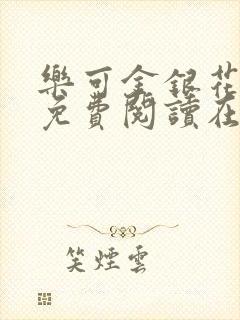 樂可金銀花
免費閱讀在
笑煙雲